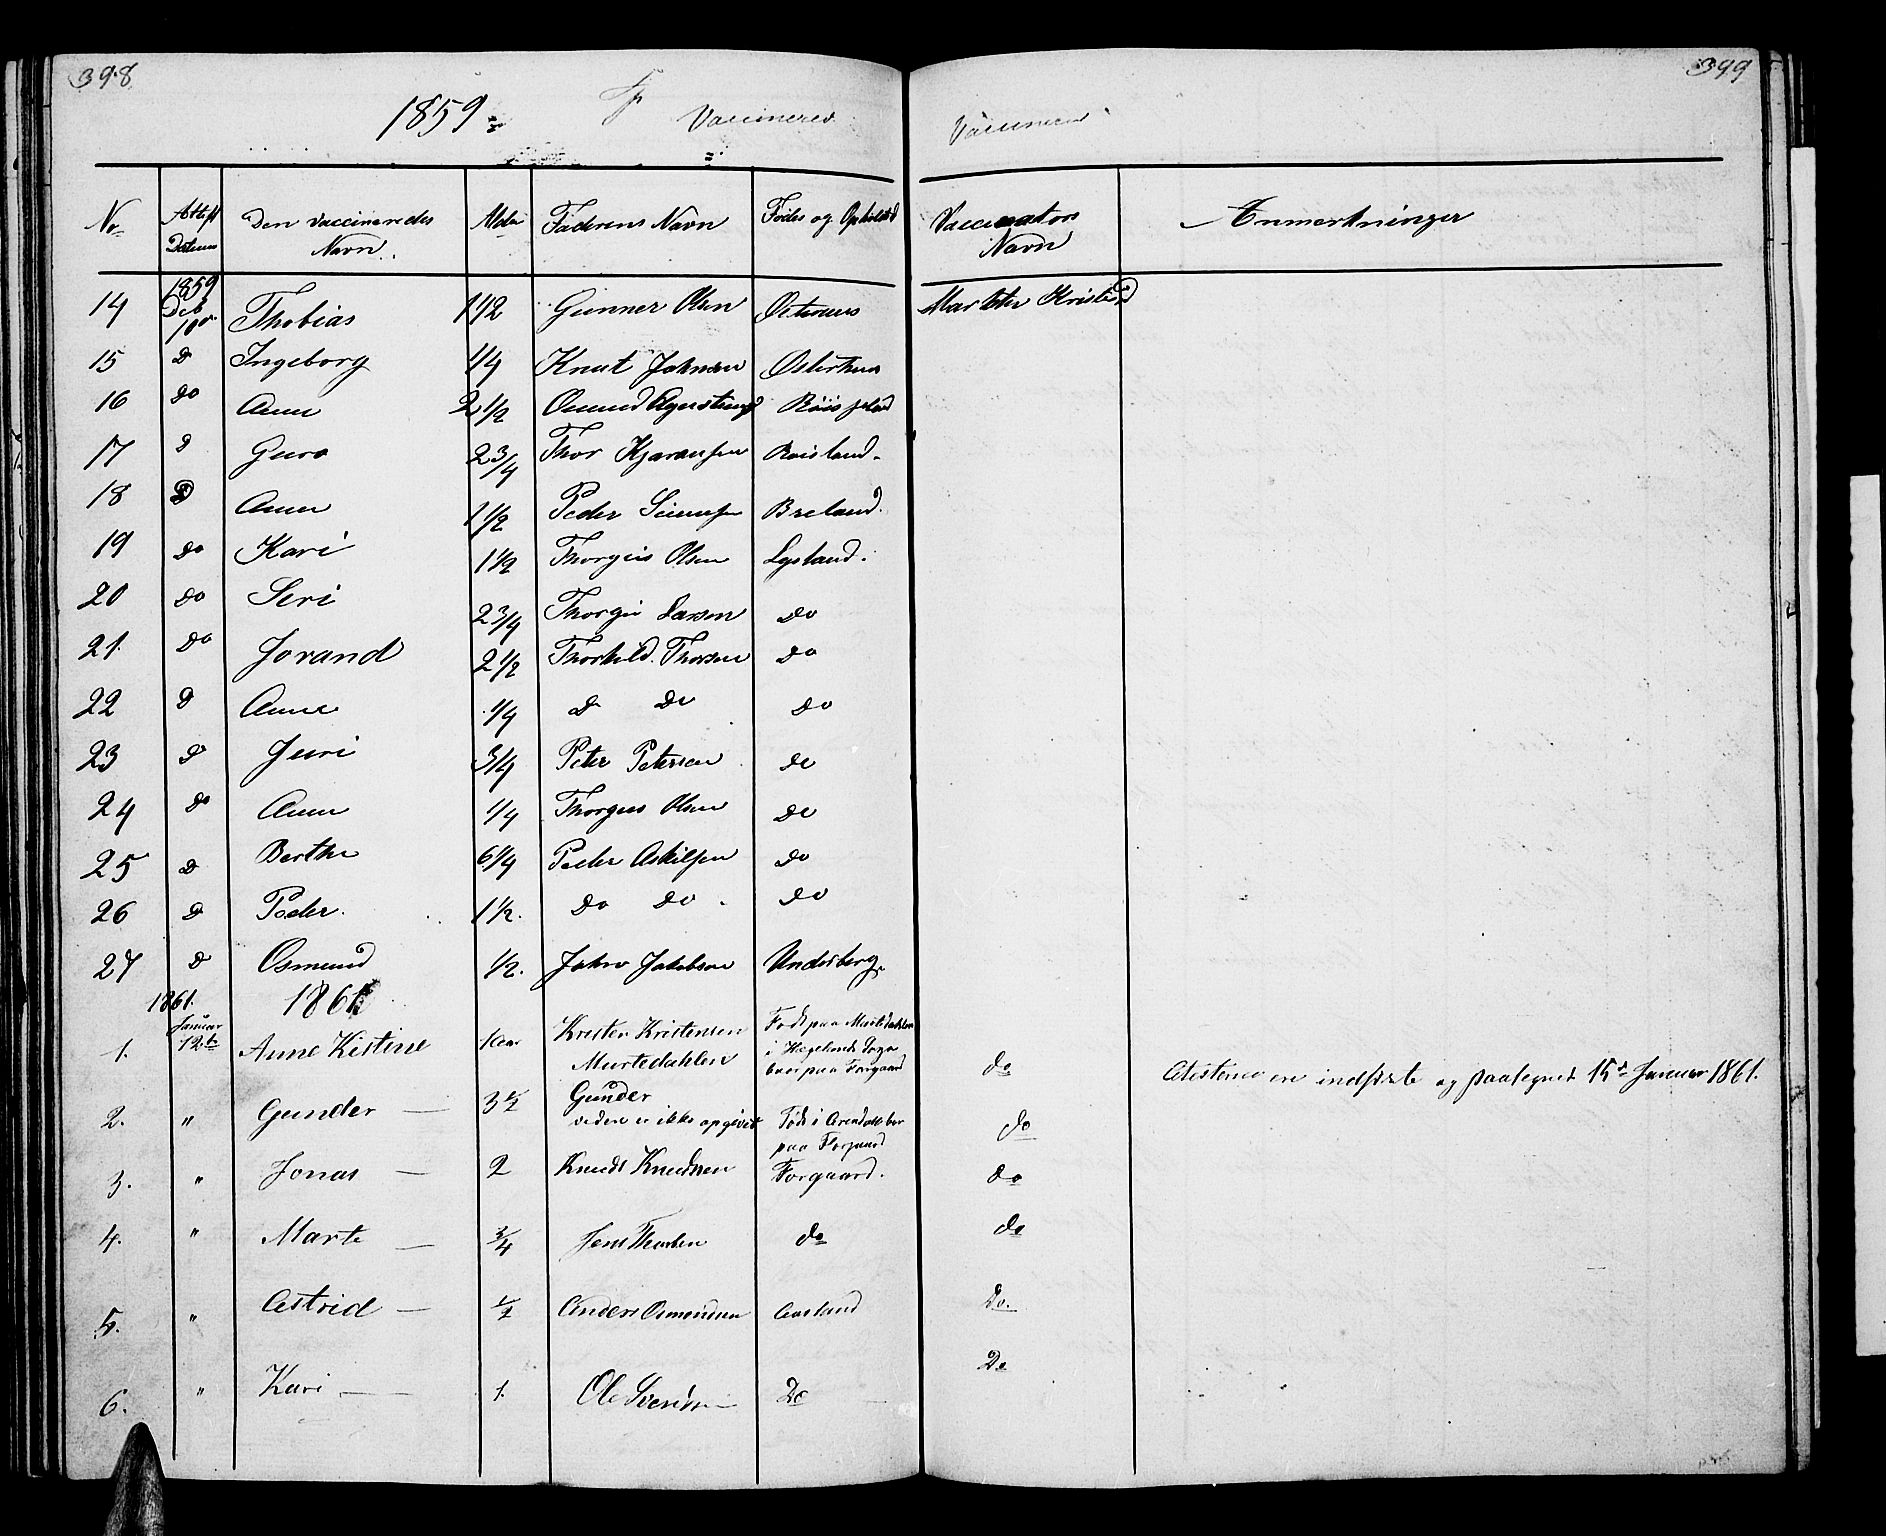 398
399
1859
F Vaccinered
Vaccinered
No Attest Datum Den vaccineredes Navn Alder Faderens Navn Fødes og Opholdsted Vaccinators Navn Anmerkninger
14 1859 Deb 10de Thobias 1 1/2 Gunner Olsen Østerhus Marthe Kristi
15 do Ingeborg 1/4 Knut Johnsen Østerhus
16 do Anne 2 1/2 Osmund Røisland
17 do Guro 2 3/4 Thor Kjøransen Roisland
18 do Anne 1 1/2 Peder Breland
19 do Kari 1 1/2 Thorgius Olsen Lystand
20 do Seri 2 3/4 Thorgie Larsen do
21. do Jorand 2 1/2 Thorkild Thorsen do
22 do Anne 1/4 do do do
23 do Juri 3/4 Peter Petersen do
24 do Anne 1/4 Thorgius Olsen do
25 do Berthe 6 1/4 Peder Askilsen do
26 do Peder. 1 1/2. do do do
27 do Osmund 1/2. John Jakobsen Underberg
1861. 1861
1. Januar 12te Anne Kistine 1 aar Kristen Kristensen Murtedahlen Født paa Murtedahlen i Hægelands Sogn boer paa Forgaard do Atesterne er indførte og paategnet 15d Januar 1861.
2. " Gunder — 3 1/2 Gunder viden er ikke opgivet Føde i Arendal boer paa Forgaard do
3. " Jonas — 2 Knudt Knudsen Forgaard. do
4. " Marte — 3/4 Jens do do
5. " Astrid — 1/2 Anders Osmondsen Aasland Do.
6. " Kari — 1. Ole Svendsen Do Do